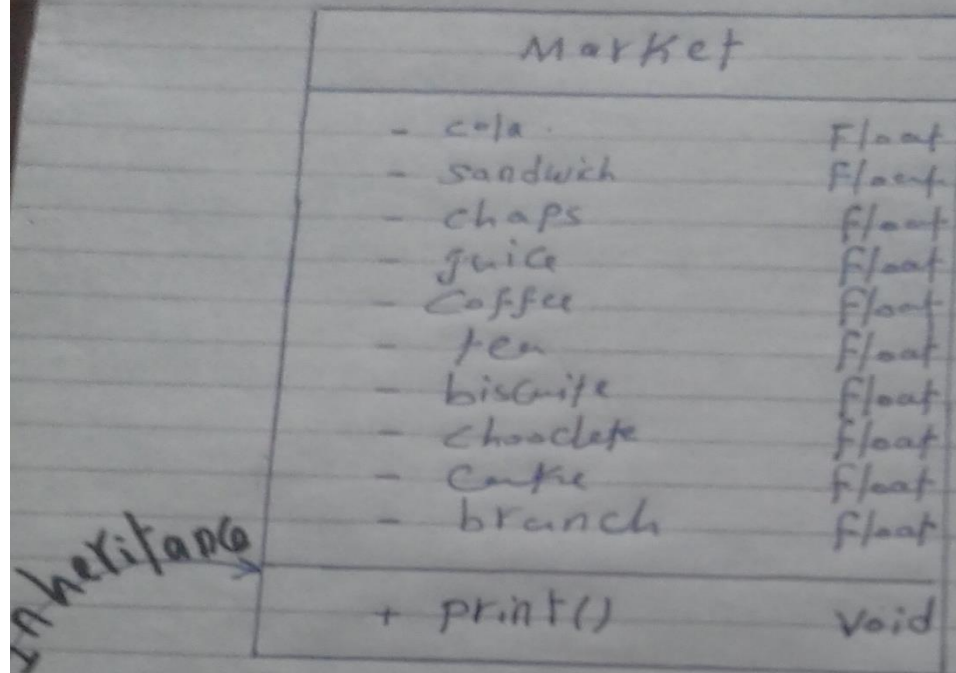 Market
- cola Float
- sandwich Float
- chaps Float
- guice Float
- Coffee Float
- tea Float
- biscuite Float
- chooclete Float
- Float
- branch Float
Inheritance
+ print() Void